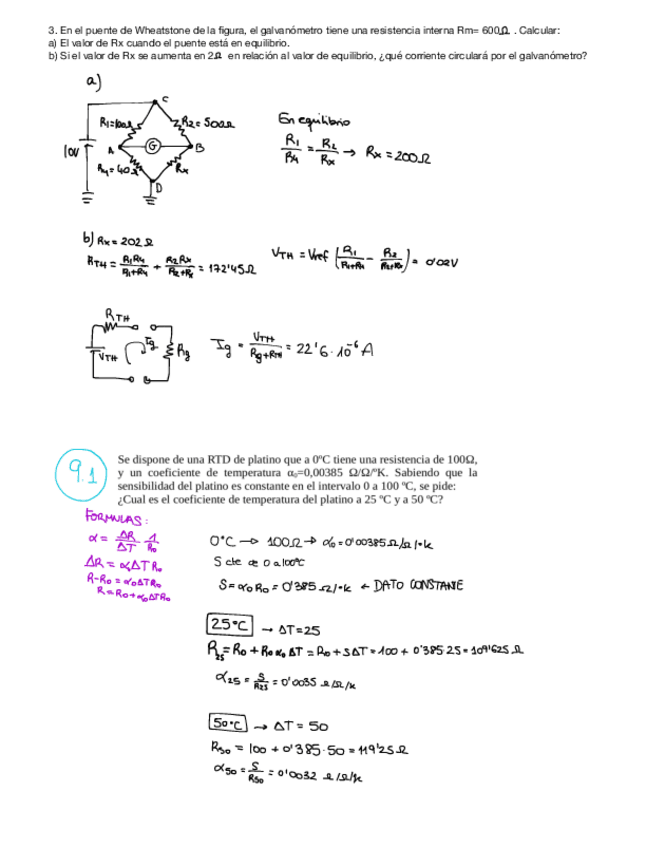 3. En el puente de Wheatstone de la figura, el galvanómetro tiene una resistencia interna Rm= 600Ω . Calcular:
a) El valor de Rx cuando el puente está en equilibrio.
b) Si el valor de Rx se aumenta en 2Ω en relación al valor de equilibrio, ¿qué corriente circulará por el galvanómetro?
a)
C
R1=100Ω R2= 500Ω
10V A G B
R4= 40Ω Rx
D
En equilibrio
R1/R4 = R2/Rx → Rx = 200Ω
b) Rx = 202Ω
RTH = R1R4/R1+R4 + R2Rx/R2+Rx = 172'45Ω
VTH = Vref (R1/R1+R4 - R2/R2+Rx) = 0'02V
RTH
VTH Ig Rg
Ig = VTH/Rg+RTH = 22'6·10⁻⁶ A
9.1
Se dispone de una RTD de platino que a 0ºC tiene una resistencia de 100Ω,
y un coeficiente de temperatura α₀=0,00385 Ω/Ω/ºK. Sabiendo que la
sensibilidad del platino es constante en el intervalo 0 a 100 ºC, se pide:
¿Cual es el coeficiente de temperatura del platino a 25 ºC y a 50 ºC?
FORMULAS:
α = ΔR/ΔT 1/R0
ΔR = α0ΔT R0
R-R0 = α0ΔTR0
R = R0+α0ΔTR0
0°C → 100Ω → α0 = 0'00385Ω/Ω/°K
S cte de 0 a 100°C
S = α0 R0 = 0'385 Ω/°K ← DATO CONSTANTE
25°C → ΔT = 25
R25 = R0 + R0 α0 ΔT = R0 + SΔT = 100 + 0'385·25 = 109'625Ω
α25 = S/R25 = 0'0035 Ω/Ω/K
50°C → ΔT = 50
R50 = 100 + 0'385·50 = 119'25Ω
α50 = S/R50 = 0'0032 Ω/Ω/K